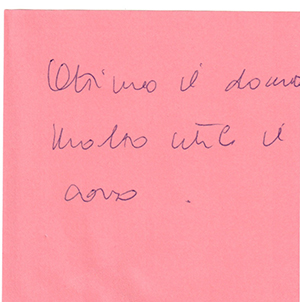 Ottimo il
Molto utile il
corso .